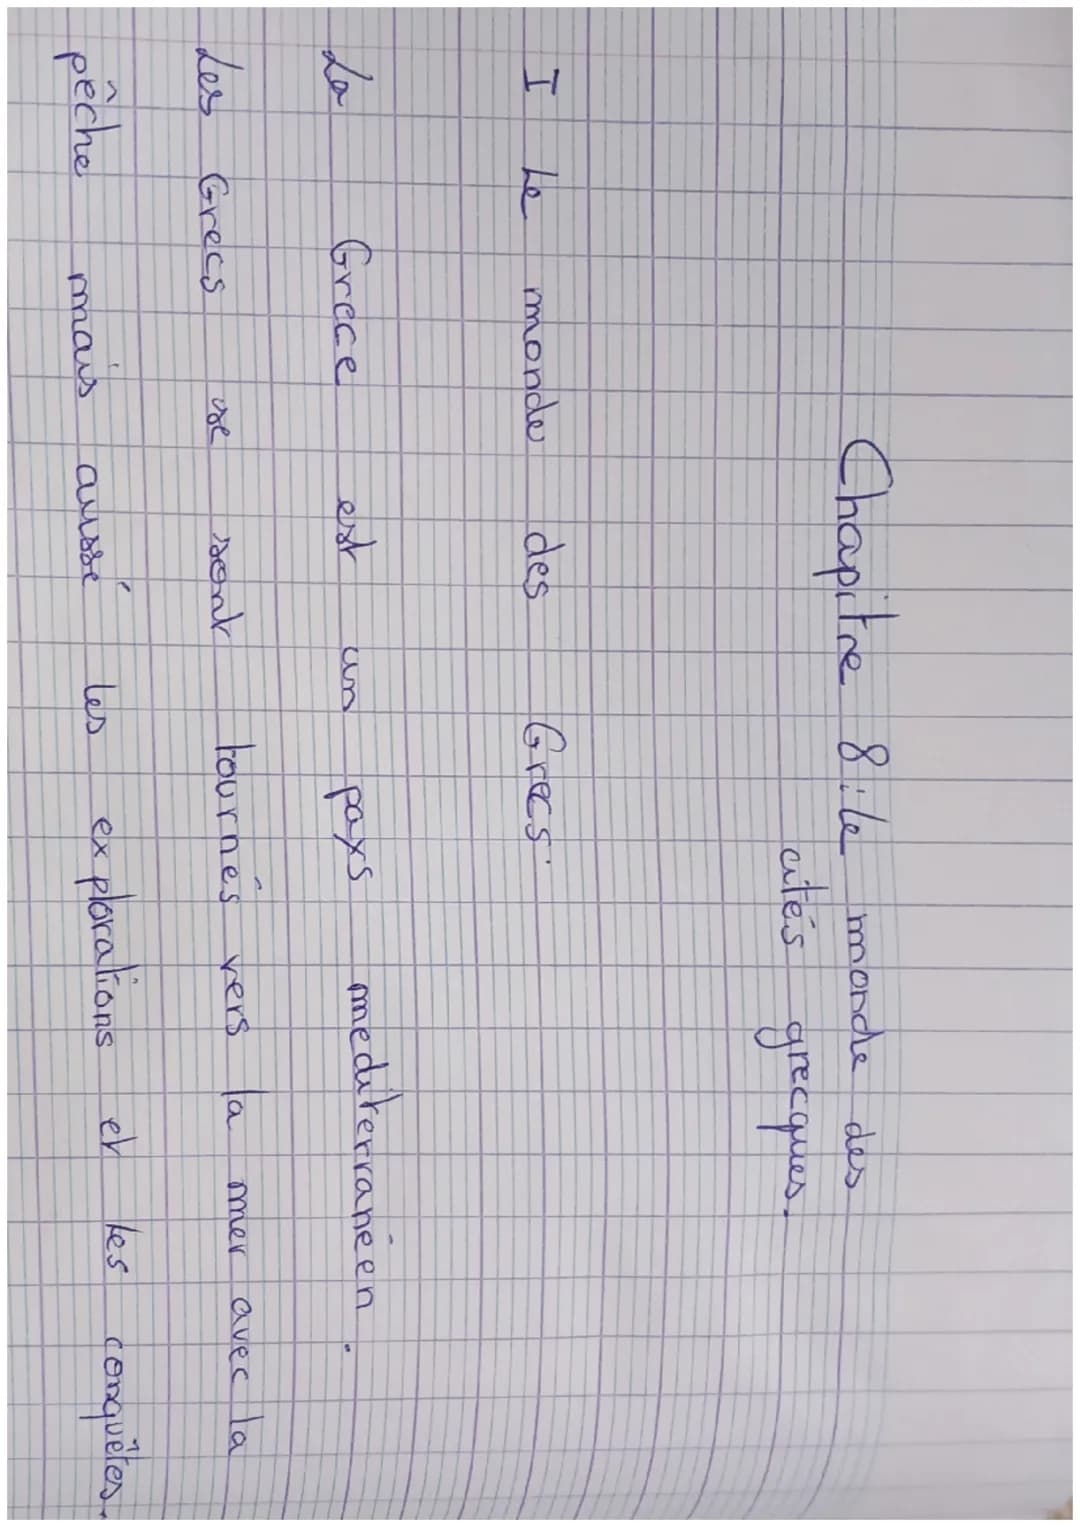 Chapitre 8 : le monde des
cités grecques.
I Le monde des Grecs.
La Grece est un pays mediterranéen.
Les Grecs se sont tournés vers la mer avec la
pêche mais aussi les explorations et les conquêtes.